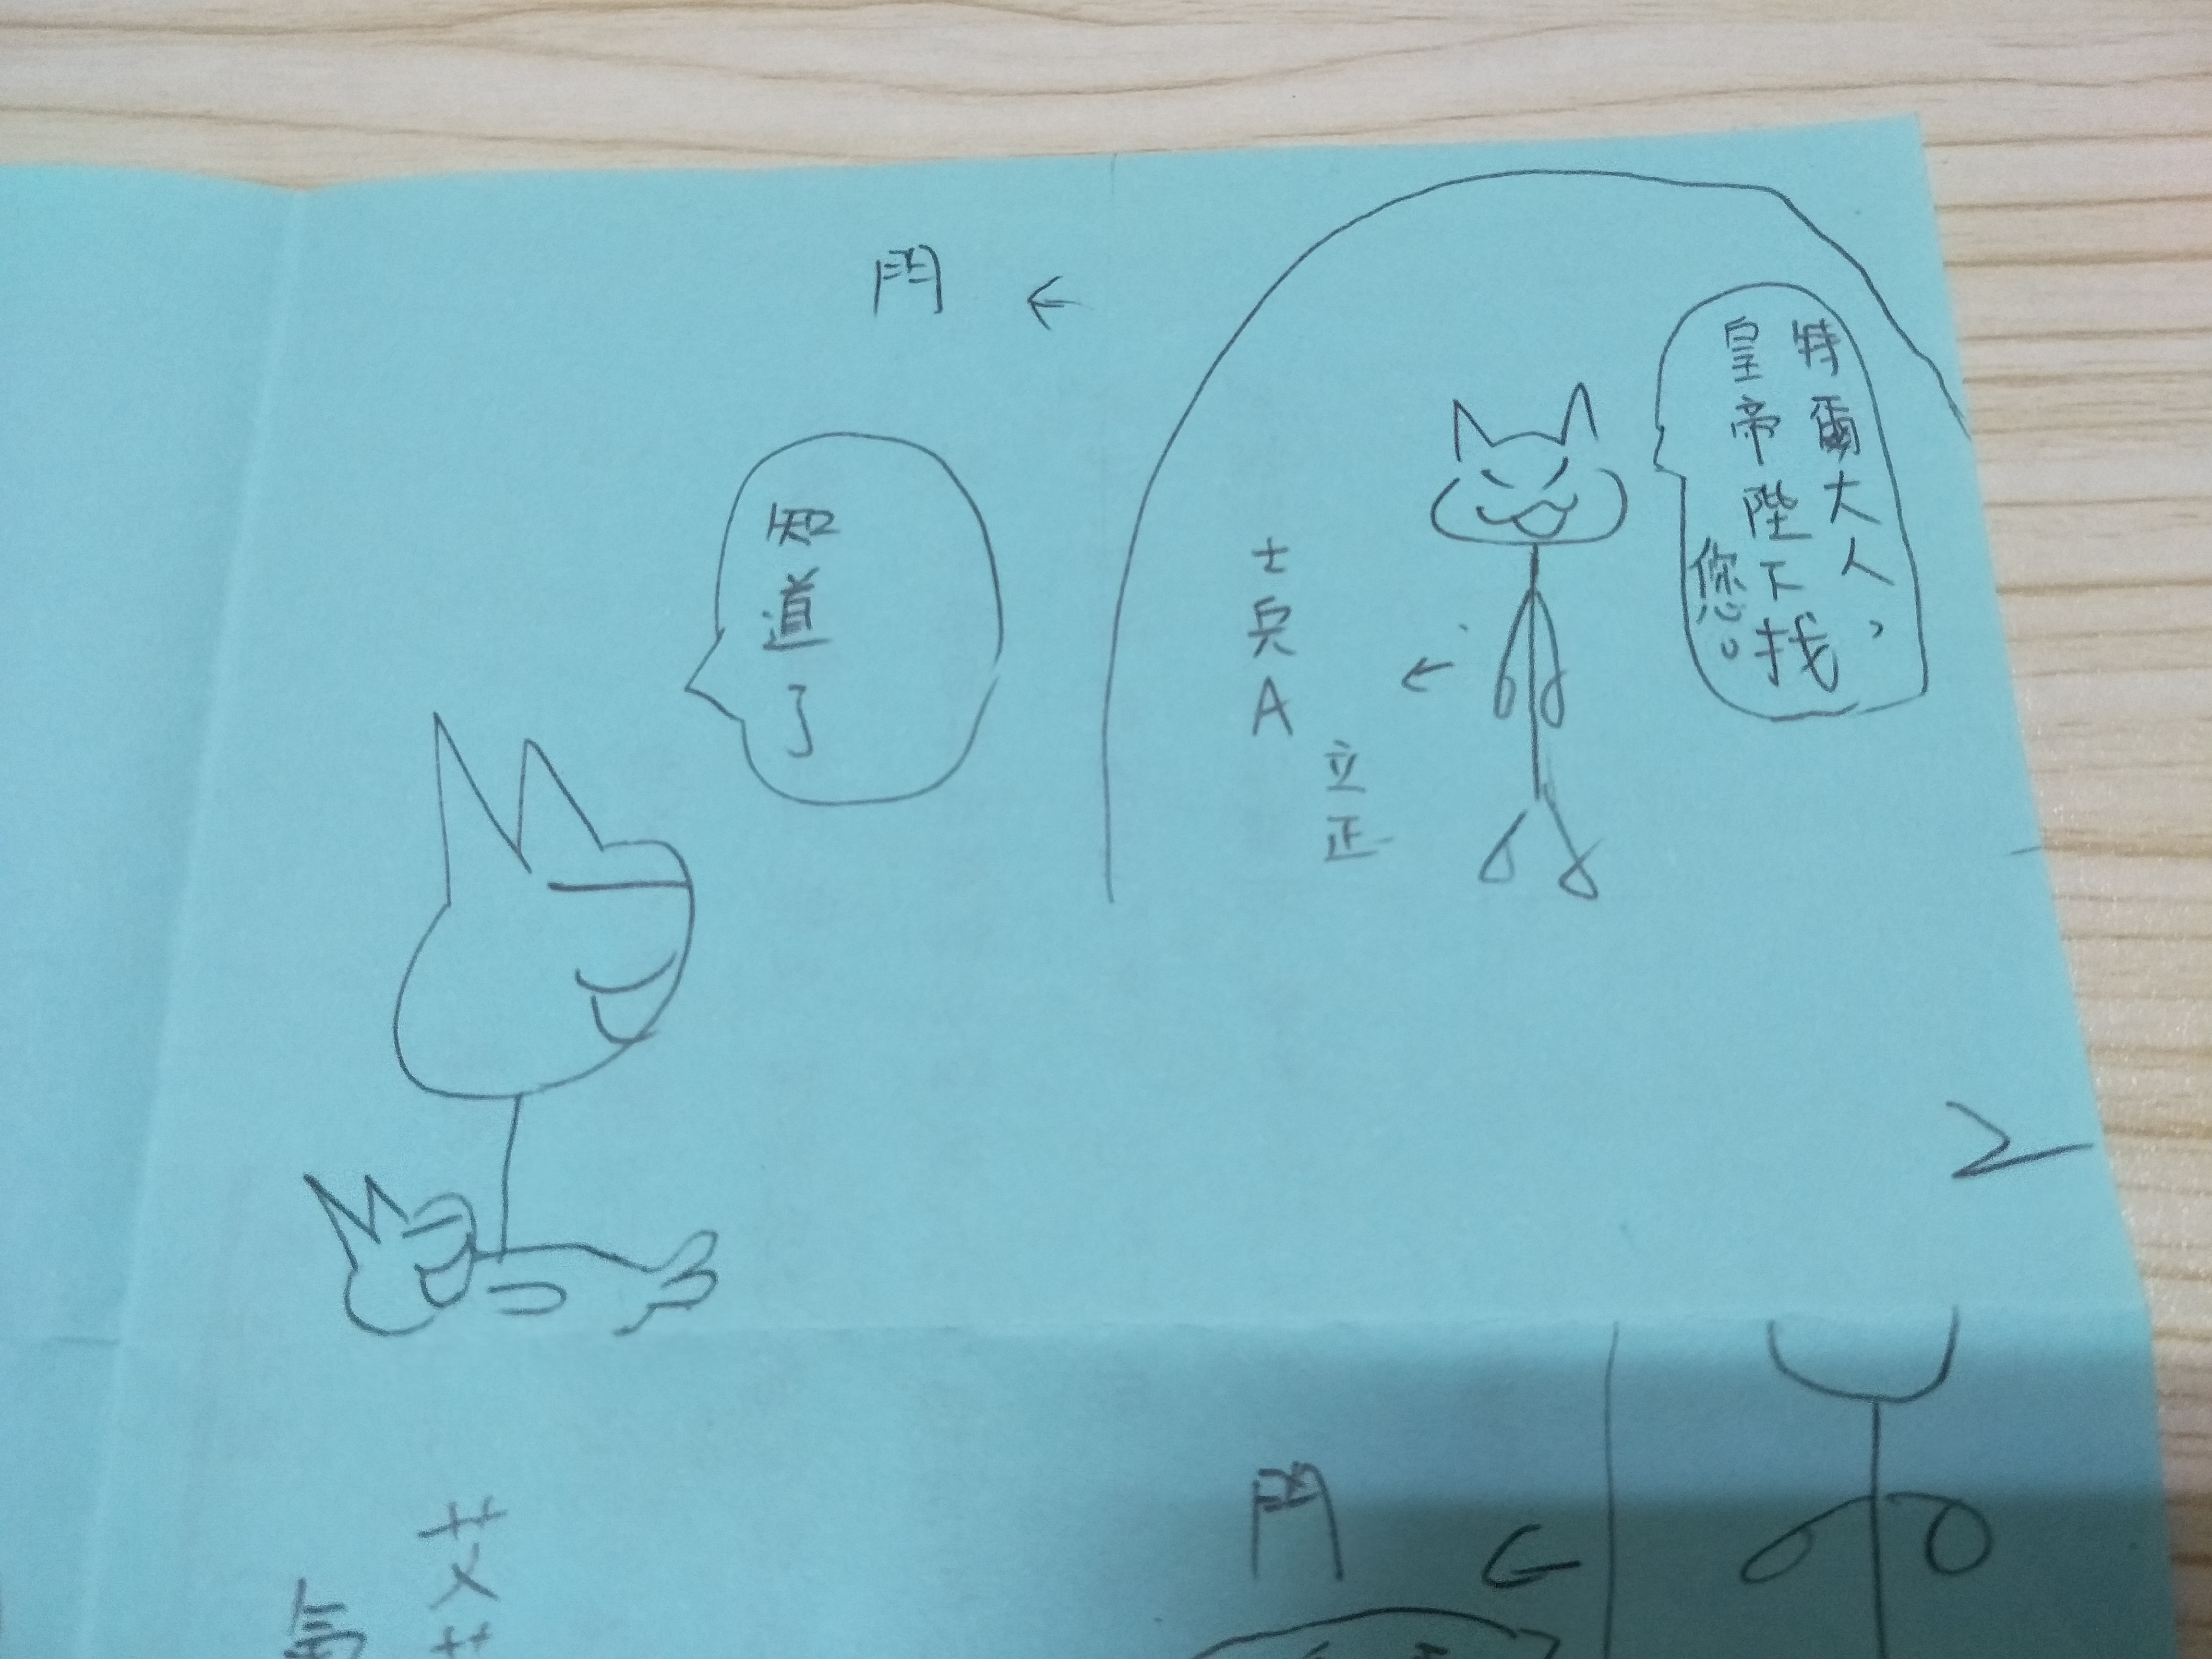 特爾大人，
皇帝陛下找
您。
士兵A
立正
門
知道了
門
艾